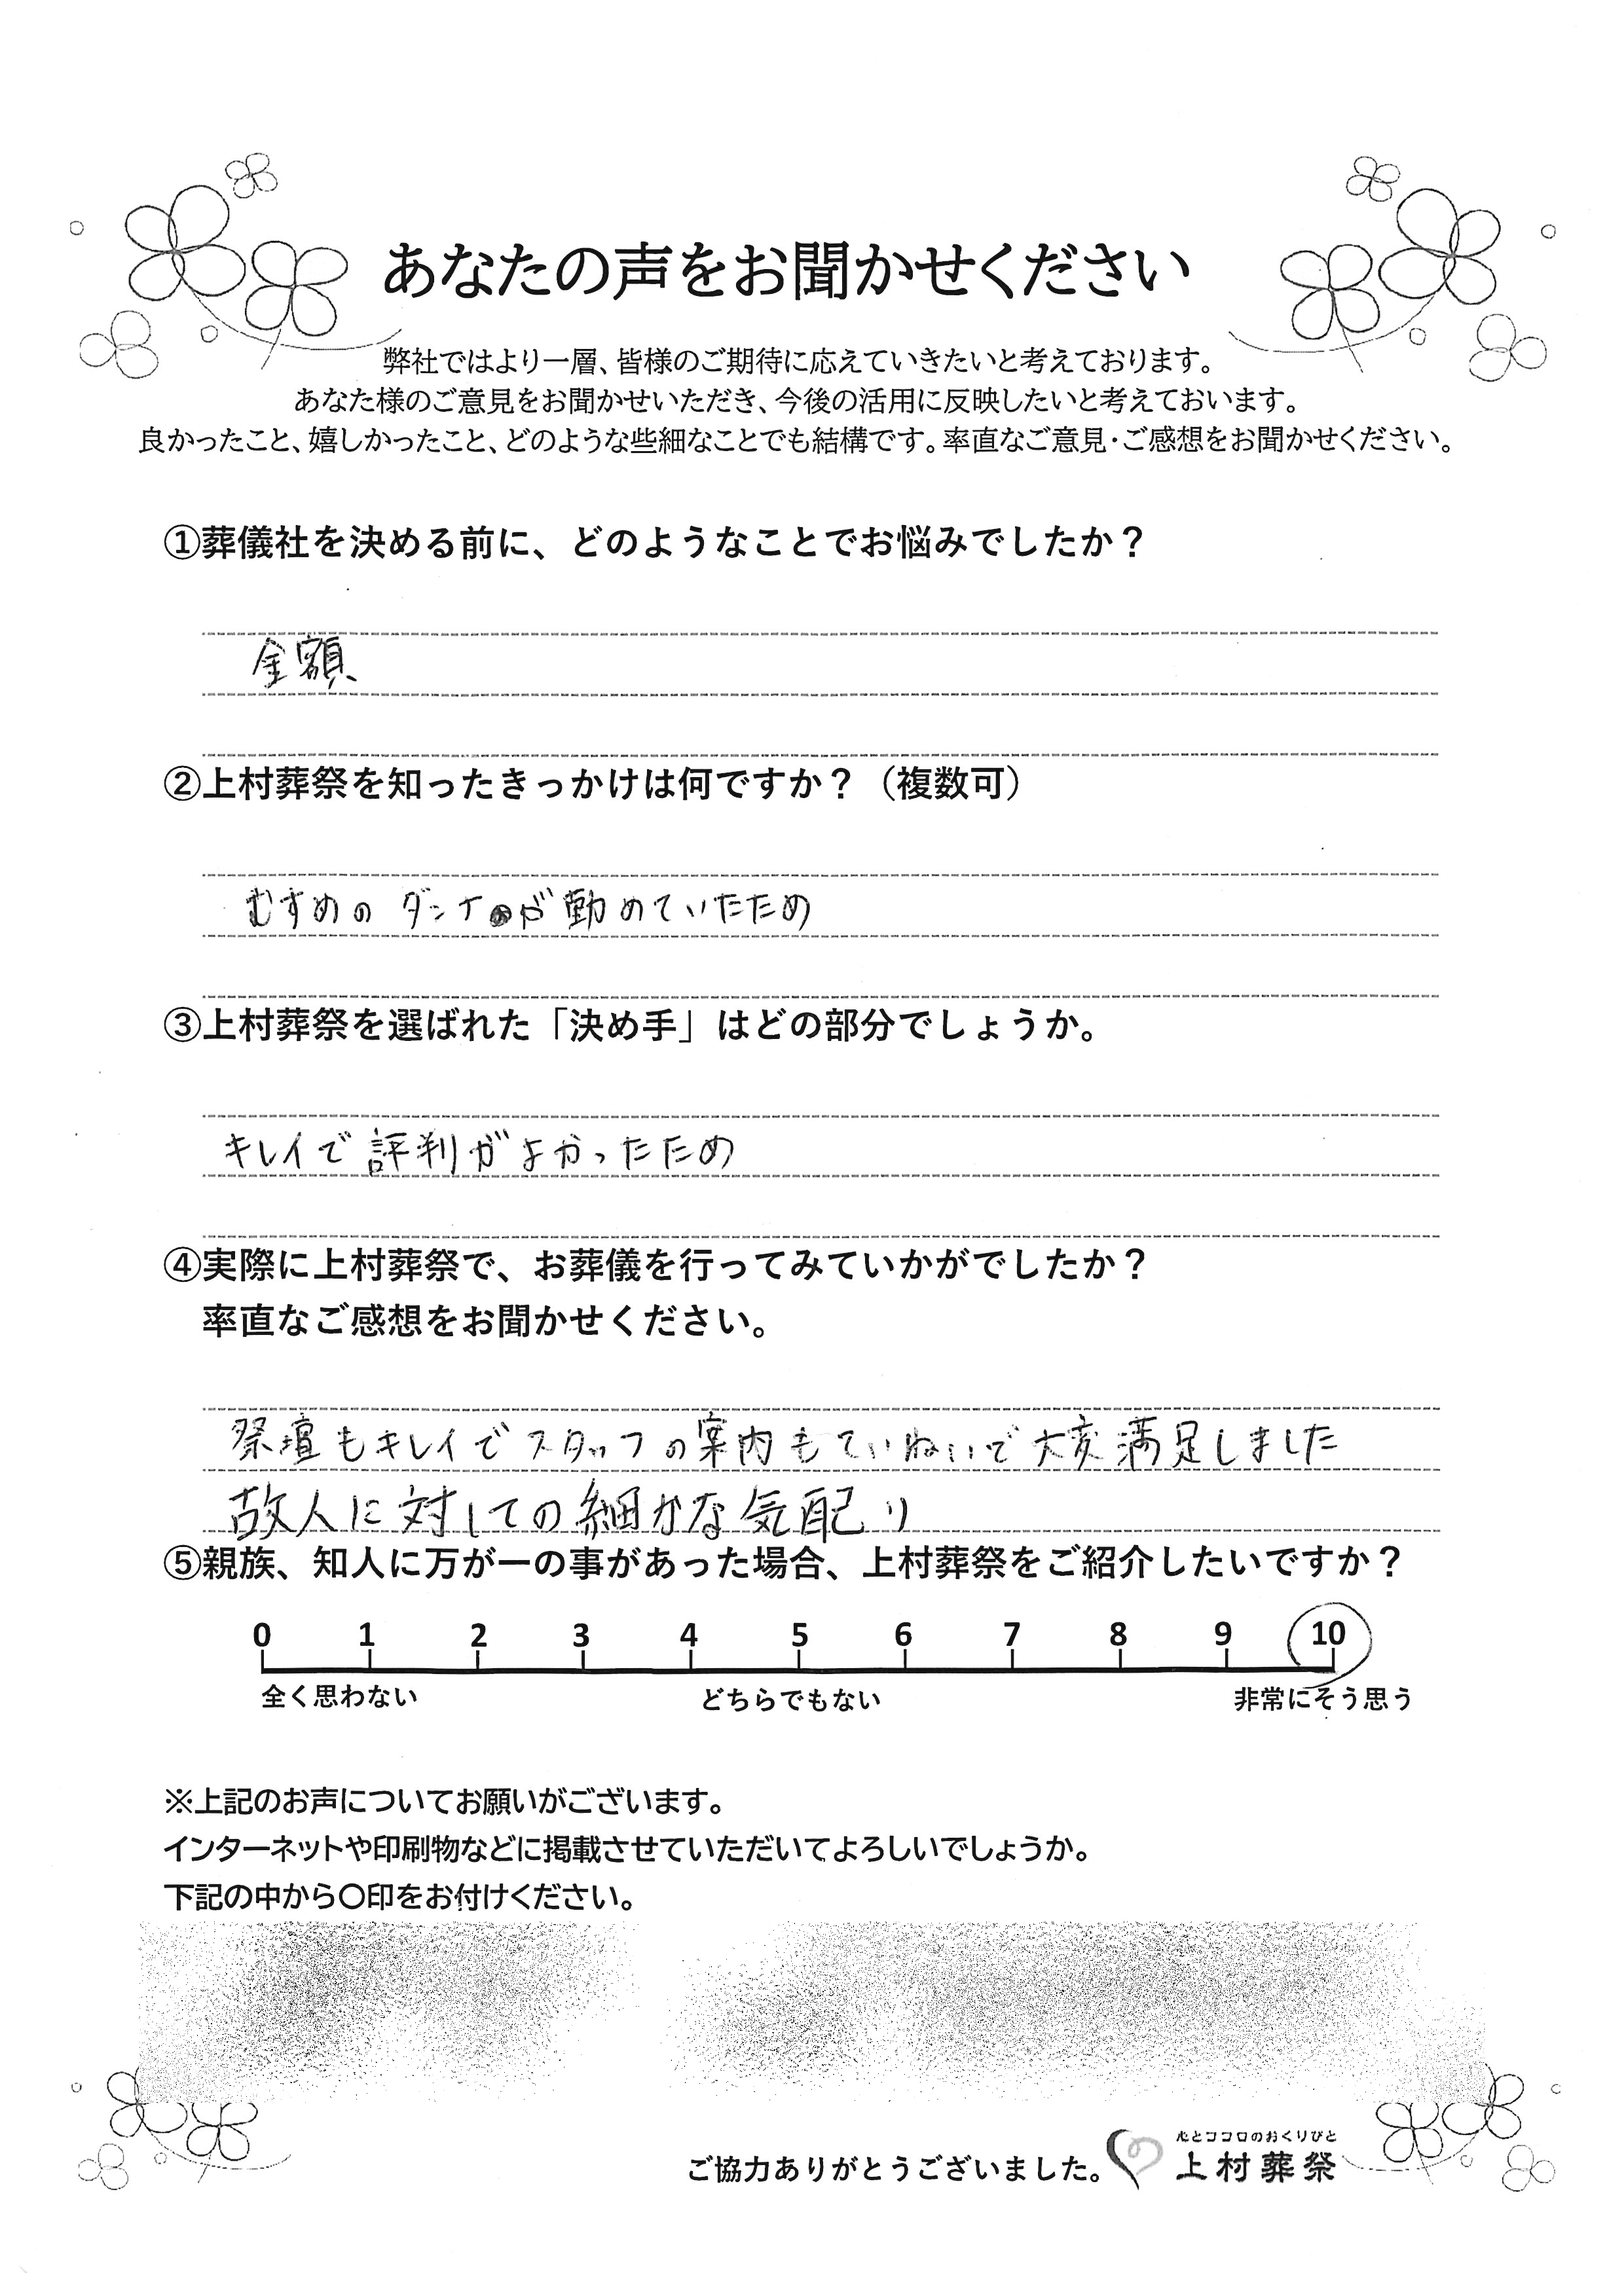 あなたの声をお聞かせください
弊社ではより一層、皆様のご期待に応えていきたいと考えております。
あなた様のご意見をお聞かせいただき、今後の活用に反映したいと考えておいます。
良かったこと、嬉しかったこと、どのような些細なことでも結構です。率直なご意見・ご感想をお聞かせください。
①葬儀社を決める前に、どのようなことでお悩みでしたか？
金額、
②上村葬祭を知ったきっかけは何ですか？（複数可）
むすめの ダンナが勤めていたため
③上村葬祭を選ばれた「決め手」はどの部分でしょうか。
キレイで評判がよかったため
④実際に上村葬祭で、お葬儀を行ってみていかがでしたか？
率直なご感想をお聞かせください。
祭壇もキレイでスタッフの案内もていねいで大変満足しました
故人に対しての細かな気配り
⑤親族、知人に万が一の事があった場合、上村葬祭をご紹介したいですか？
0 1 2 3 4 5 6 7 8 9 10
全く思わない どちらでもない 非常にそう思う
※上記のお声についてお願いがございます。
インターネットや印刷物などに掲載させていただいてよろしいでしょうか。
下記の中から〇印をお付けください。
心とココロのおくりびと
ご協力ありがとうございました。 上村葬祭